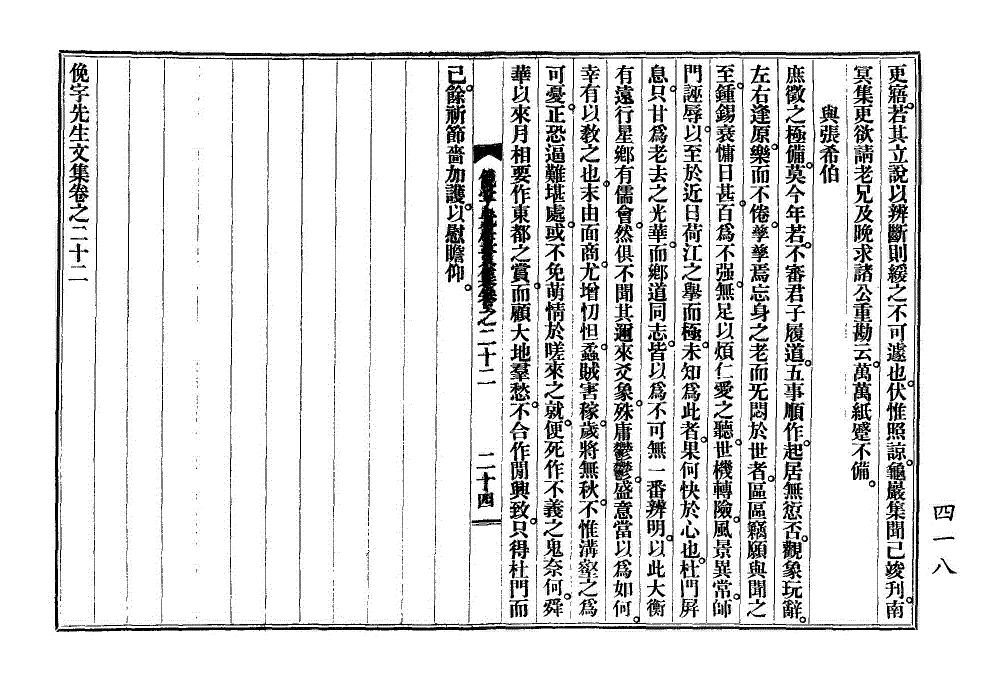 更寤若其立說以辨斷則緩之不可遽也伏惟照諒龜巖集聞已竣刊南
冥集更欲請老兄及晚求諸公重勘云萬萬紙蹙不備
與張希伯
庶徵之極備莫今年若不審君子履道五事順作起居無愆否觀象玩辭
左右逢原樂而不倦孳孳焉忘身之老而旡悶於世者區區竊願與聞之
至鍾錫衰慵日甚百爲不强無足以煩仁愛之聽世機轉險風景異常師
門誣辱以至於近日荷江之擧而極未知爲此者果何快於心也杜門屛
息只甘爲老去之光華而鄕道同志皆以爲不可無一番辨明以此大衡
有遠行星鄕有儒會然俱不聞其邇來爻象殊庸鬱鬱盛意當以爲如何
幸有以敎之也末由面商尤增忉怛蟊賊害稼歲將無秋不惟溝壑之爲
可憂正恐逼難堪處或不免萌情於嗟來之就便死作不義之鬼奈何舜
華以來月相要作東都之賞而顧大地羣愁不合作閒興致只得杜門而
已餘祈節嗇加護以慰瞻仰
俛宇先生文集卷之二十二
二十四
俛宇先生文集卷之二十二
四一八